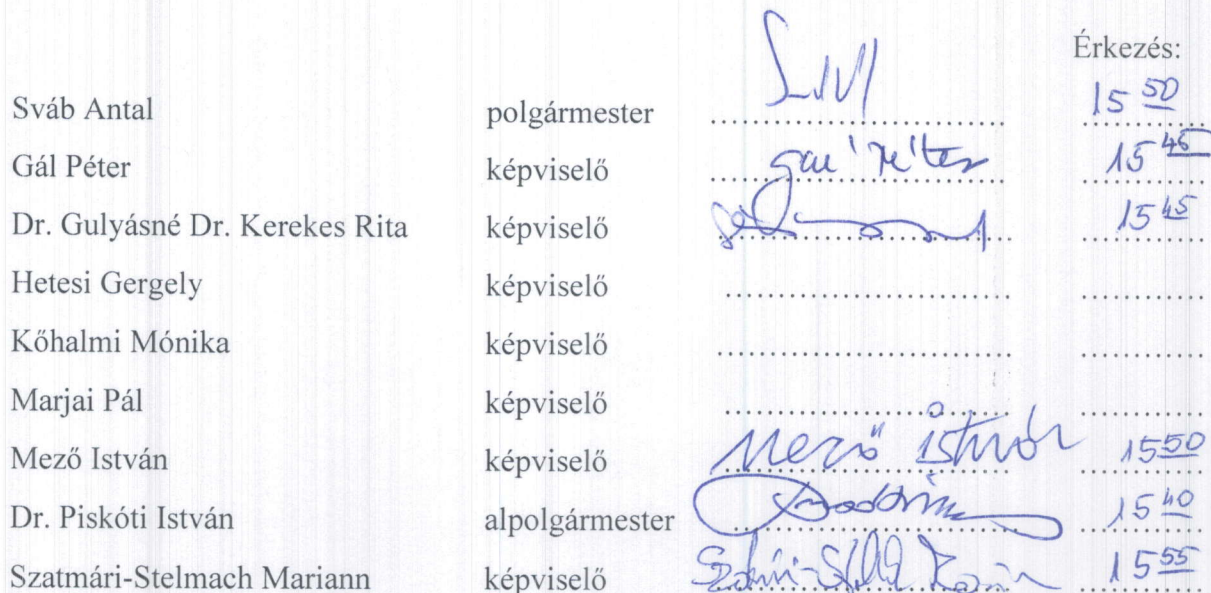 Érkezés:
Sváb Antal polgármester 15 50
Gál Péter képviselő Gál Péter 15 45
Dr. Gulyásné Dr. Kerekes Rita képviselő 15 45
Hetesi Gergely képviselő
Kőhalmi Mónika képviselő
Marjai Pál képviselő
Mező István képviselő Mező István 15 50
Dr. Piskóti István alpolgármester 15 40
Szatmári-Stelmach Mariann képviselő 15 55